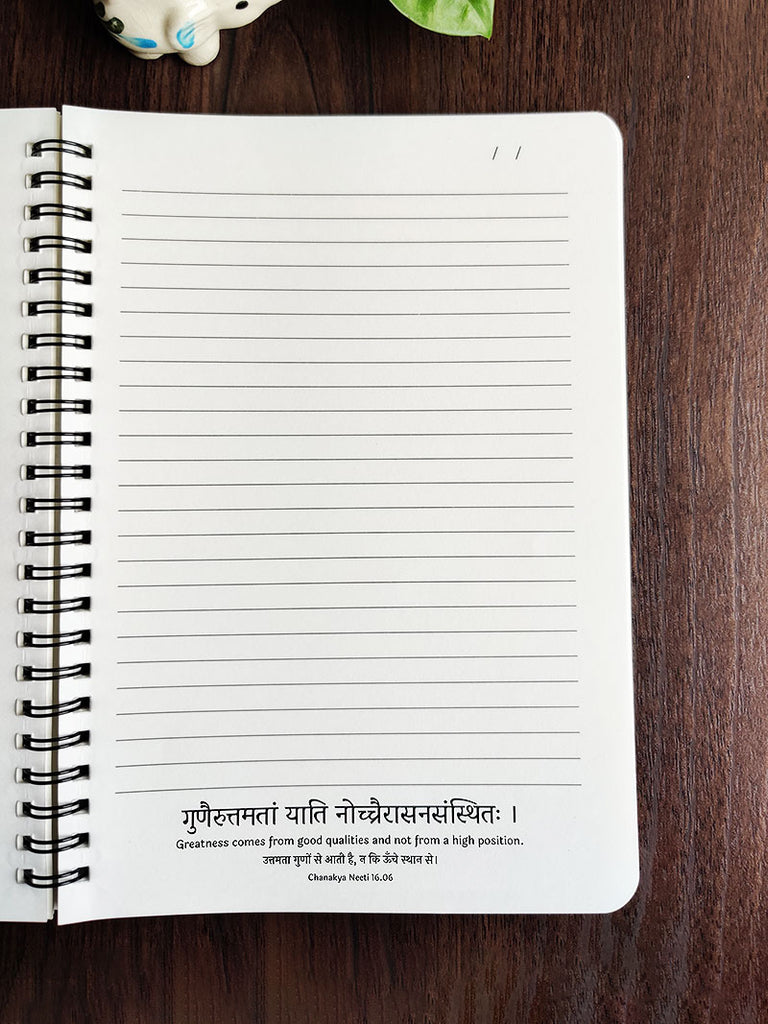 / /
गुणैरुत्तमतां याति नोच्चैरासनसंस्थितः ।
Greatness comes from good qualities and not from a high position.
उत्तमता गुणों से आती है, न कि ऊँचे स्थान से।
Chanakya Neeti 16.06